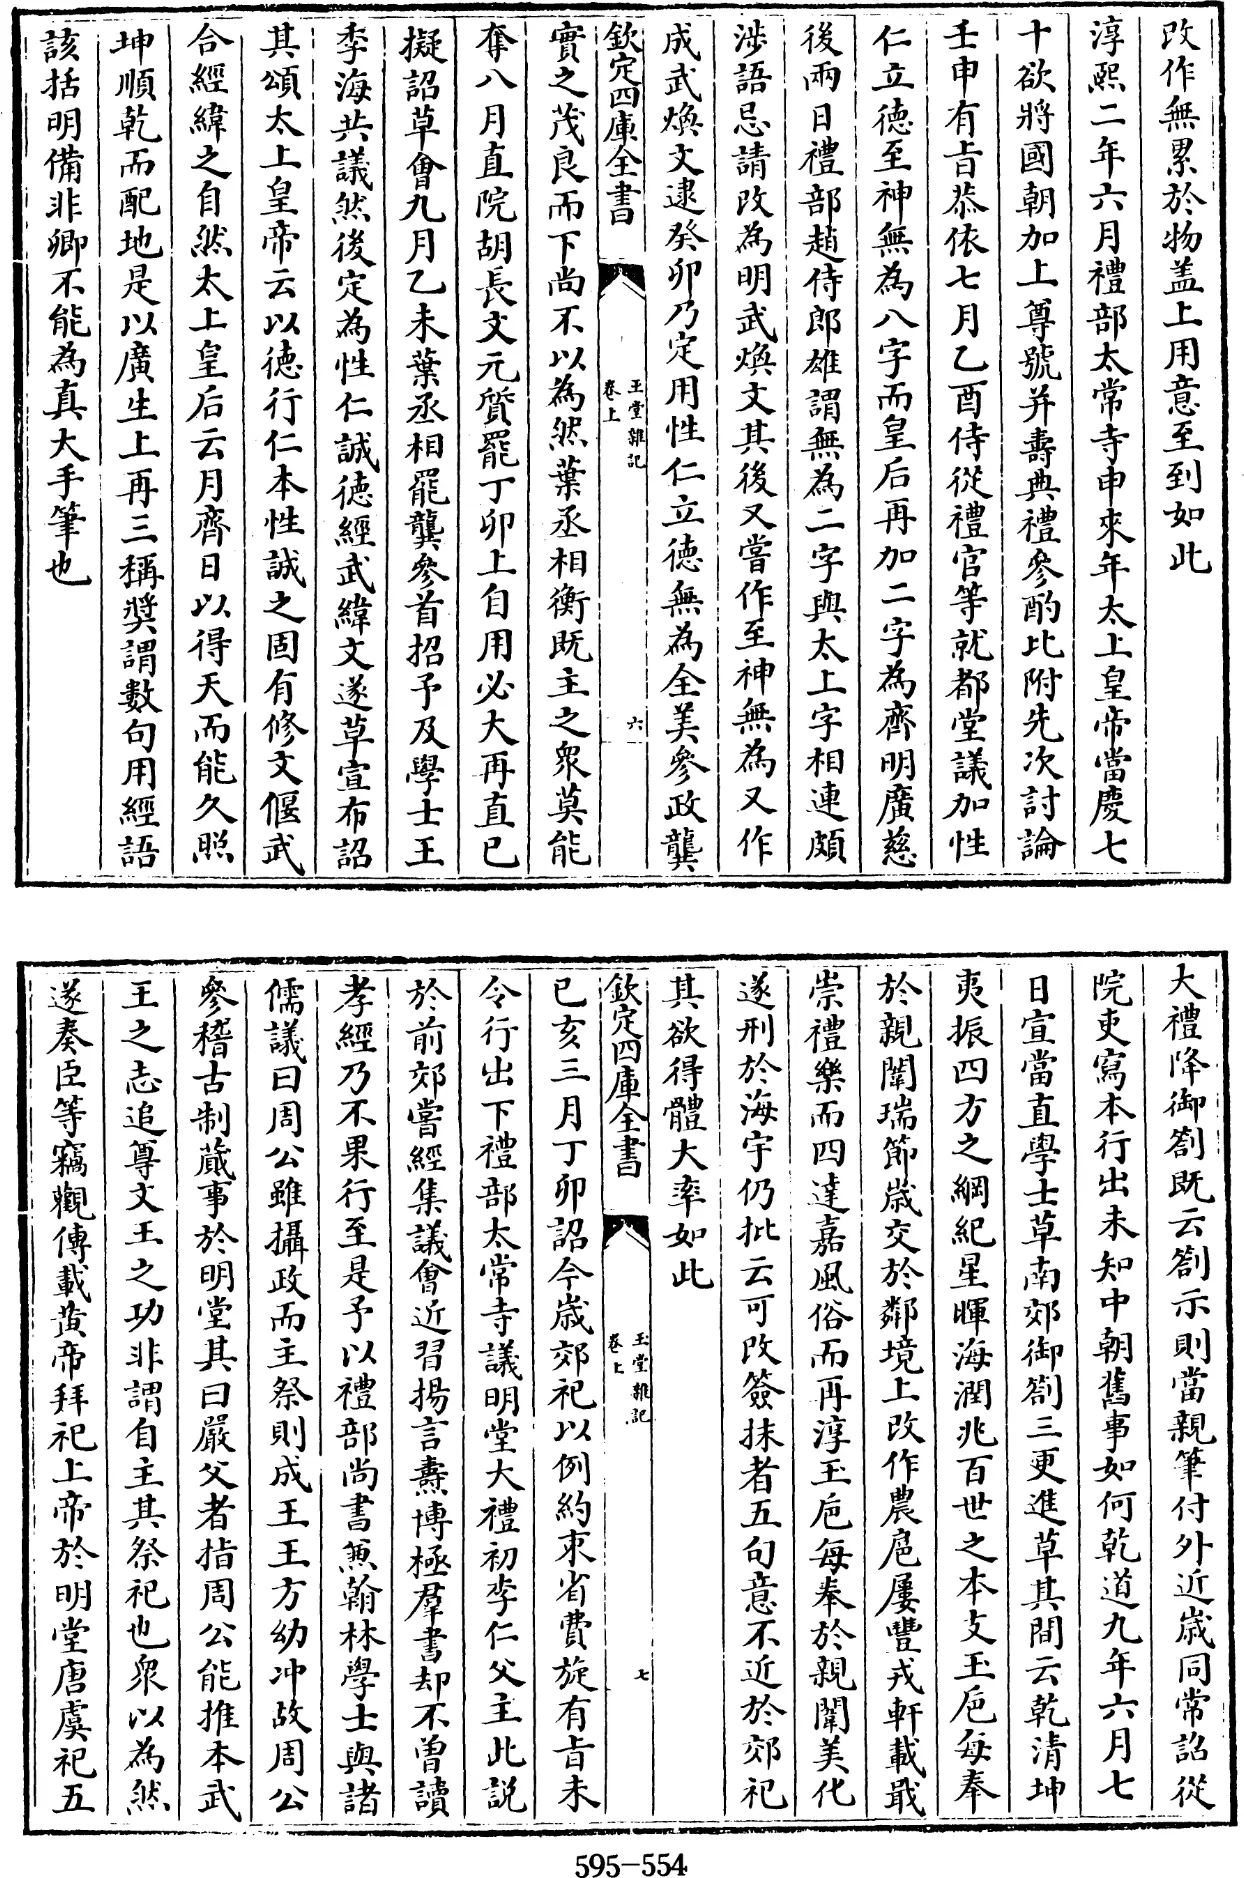 改作無累於物盖上用意至到如此
淳熙二年六月禮部太常寺申來年太上皇帝當慶七
十欲將國朝加上尊號并壽典禮參酌比附先次討論
壬申有㫖恭依七月乙酉侍從禮官等就都堂議加性
仁立徳至神無為八字而皇后再加二字為齊明廣慈
後兩日禮部趙侍郎雄謂無為二字與太上字相連頗
涉語忌請改為明武煥文其後又嘗作至神無為又作
成武煥文逮癸卯乃定用性仁立徳無為全美參政龔
欽定四庫全書
玉堂雜記
卷上
六
實之茂良而下尚不以為然葉丞相衡既主之衆莫能
奪八月直院胡長文元質罷丁卯上自用必大再直已
擬詔草會九月乙未葉丞相罷龔參首招予及學士王
季海共議然後定為性仁誠徳經武緯文遂草宣布詔
其頌太上皇帝云以徳行仁本性誠之固有修文偃武
合經緯之自然太上皇后云月齊日以得天而能久照
坤順乾而配地是以廣生上再三稱奬謂數句用經語
該括明備非卿不能為真大手筆也
大禮降御劄既云劄示則當親筆付外近嵗同常詔從
院吏寫本行出未知中朝舊事如何乾道九年六月七
日宣當直學士草南郊御劄三更進草其間云乾清坤
夷振四方之綱紀星暉海潤兆百世之本支玉巵每奉
於親闈瑞節嵗交於鄰境上改作農扈屢豐戎軒載戢
崇禮樂而四達嘉風俗而再淳玉巵每奉於親闈美化
遂刑於海宇仍批云可改簽抹者五句意不近於郊祀
其欲得體大率如此
欽定四庫全書
玉堂雜記
卷上
七
已亥三月丁卯詔今嵗郊祀以例約束省費旋有㫖未
令行出下禮部太常寺議明堂大禮初李仁父主此説
於前郊嘗經集議會近習揚言燾博極羣書却不曾讀
孝經乃不果行至是予以禮部尚書兼翰林學士與諸
儒議曰周公雖攝政而主祭則成王王方幼冲故周公
參稽古制蕆事於明堂其曰嚴父者指周公能推本武
王之志追尊文王之功非謂自主其祭祀也衆以為然
遂奏臣等竊觀傳載黄帝拜祀上帝於明堂唐虞祀五
595-554